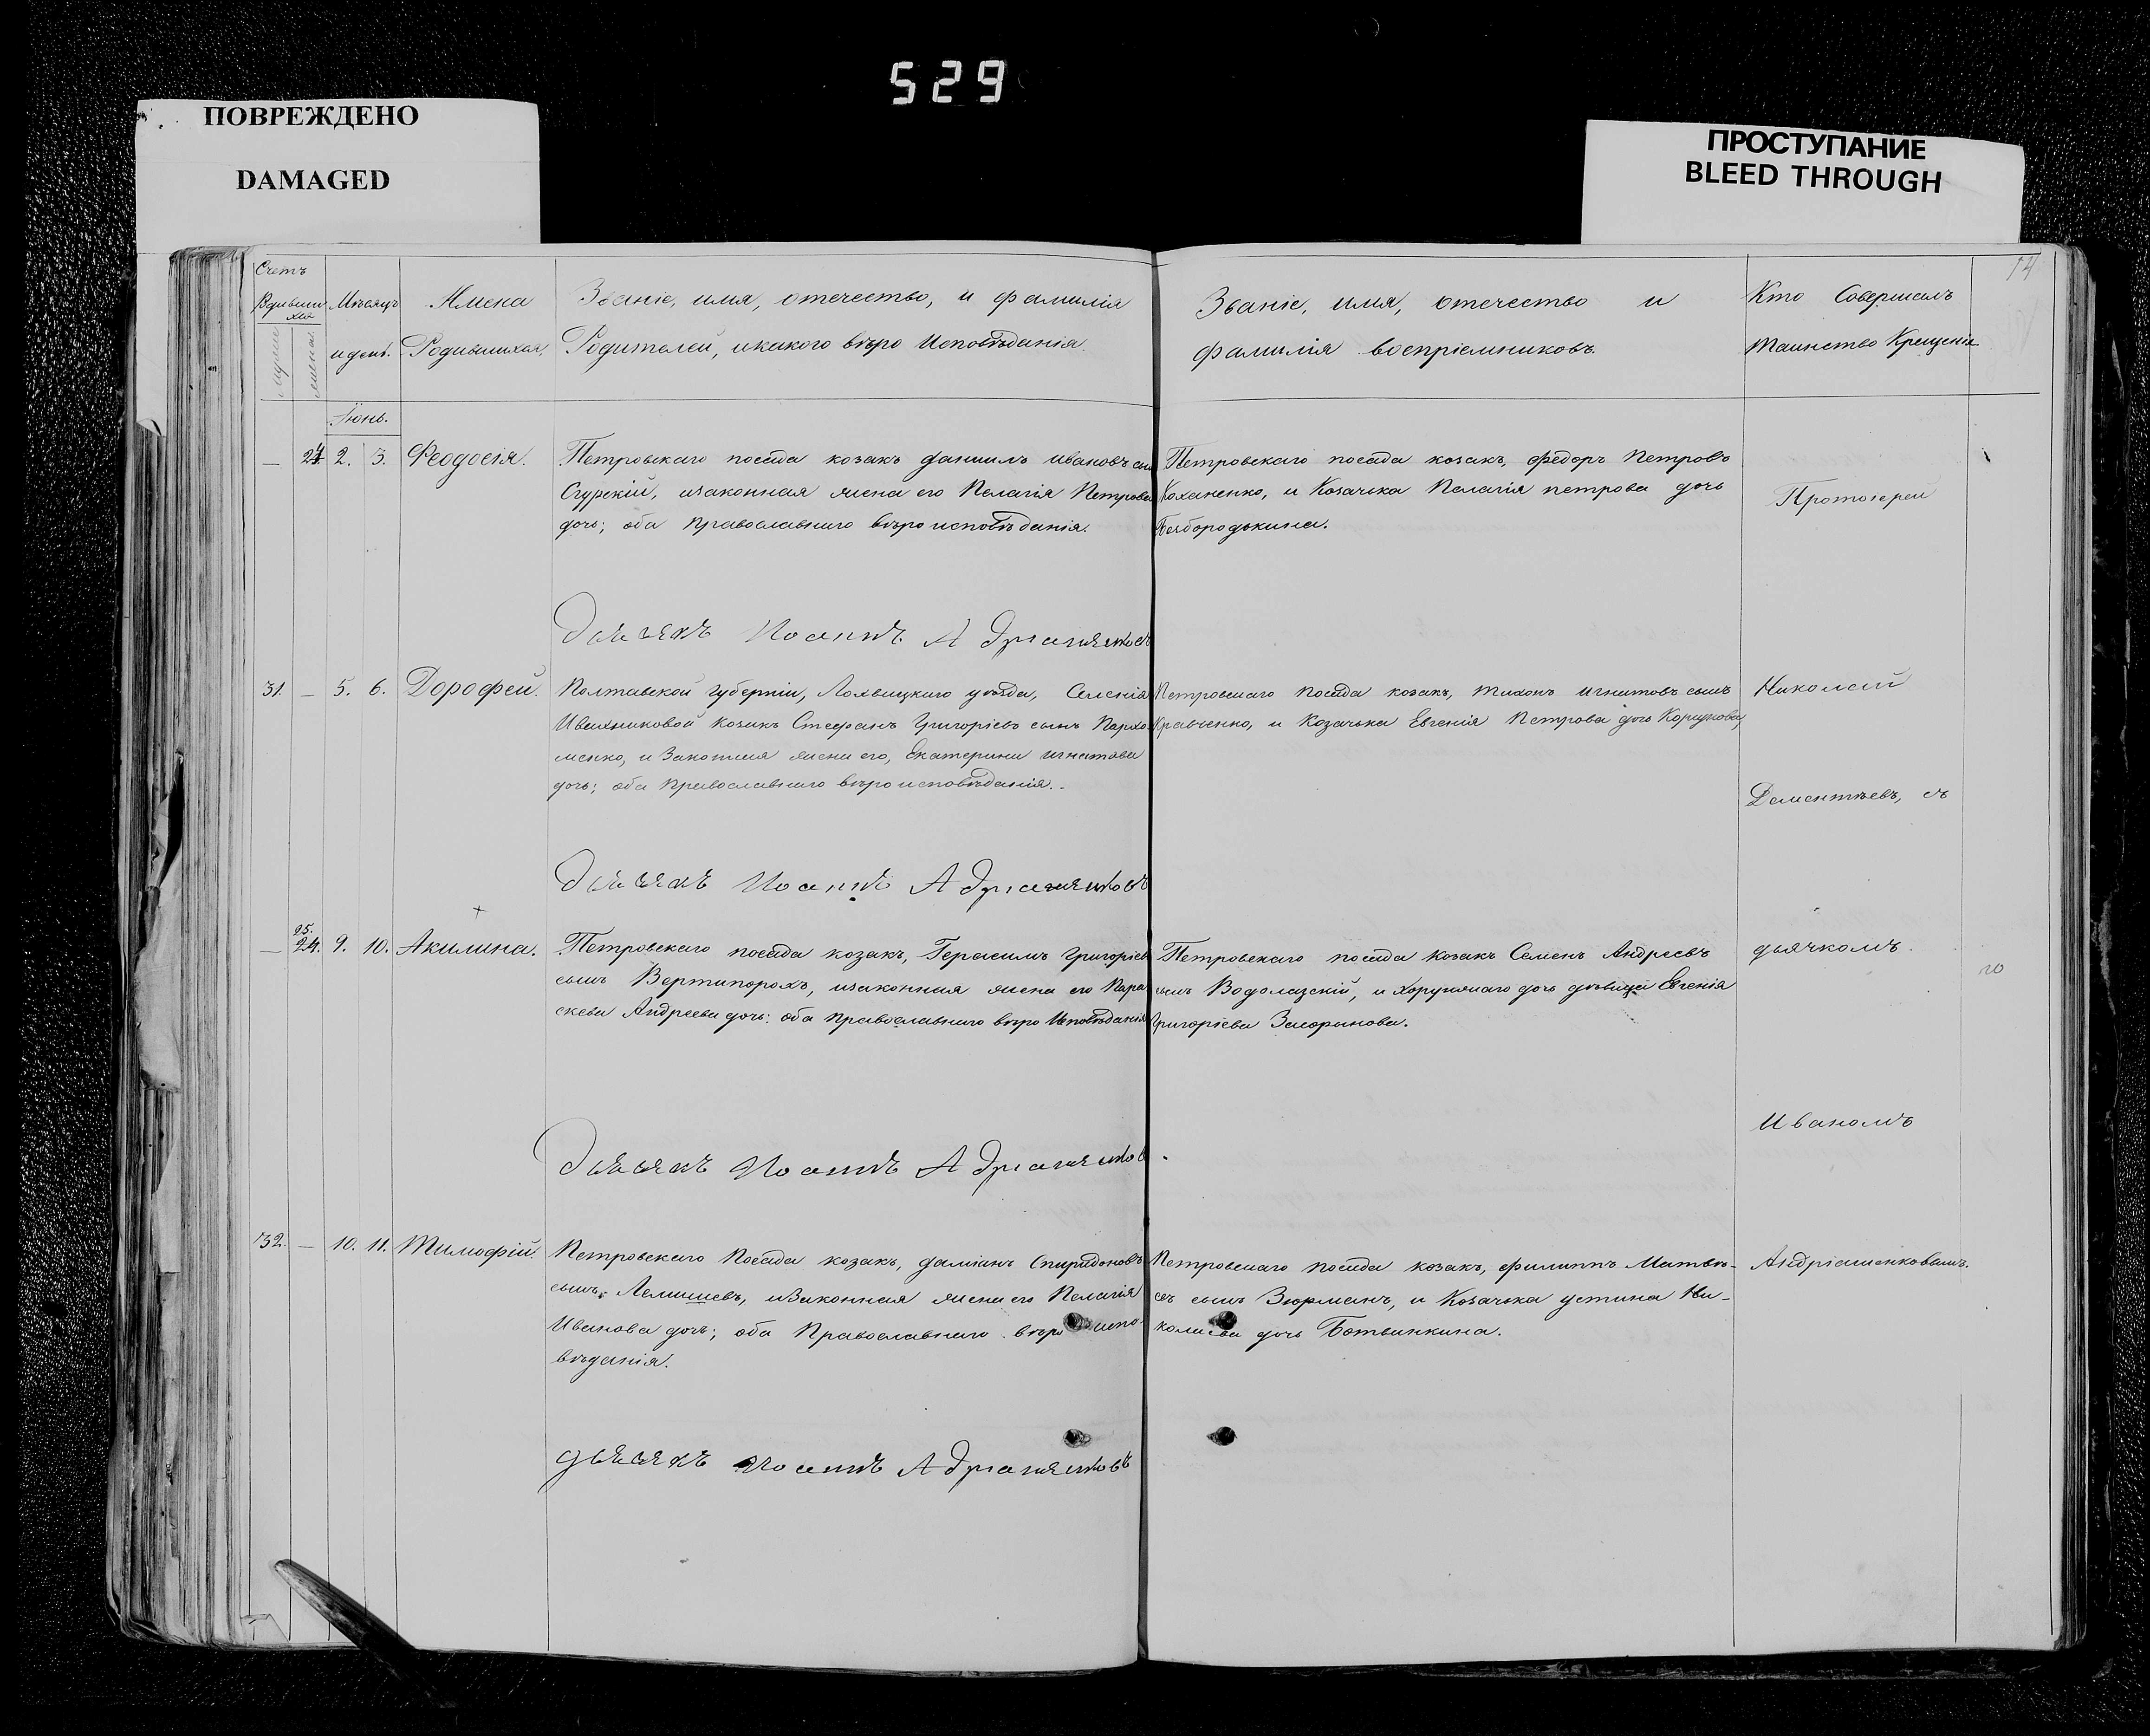 529
ПОВРЕЖДЕНО
DAMAGED
ПРОСТУПАНИЕ
BLEED THROUGH
14
Счетъ
Родивши
хся
Мѣсяцъ
и день.
Имена
Родившихся,
Званіе, имя, отечество, и фамилія
Родителей, и какого вѣро Исповѣданія.
Званіе, имя, отечество и
фамилія воспріемниковъ.
Кто Совершалъ
таинство Крещенія
Іюнь.
— 24. 2. 3. Феодосія.
Петровскаго посада козакъ Даниилъ Ивановъ сынъ
Сгурскій, и законная жена его Пелагія Петрова
дочь; оба православнаго вѣро исповѣданія.
Петровскаго посада козакъ, Федоръ Петровъ
Коханенко, и Козачка Пелагія петрова дочь
Безбородькина.
Протоіерей
Дьячекъ Иоаннъ Адріаненковъ
31. — 5. 6. Дорофей.
Полтавской губерніи, Лохвицкаго уѣзда, Селенія
Ивахниковой козакъ Стефанъ Григоріевъ сынъ Пархо
менко, и Законная жена его, Екатерина игнатова
дочь; оба православнаго вѣро исповѣданія.
Петровскаго посада козакъ, Тихонъ игнатовъ сынъ
Кравченко, и Козачька Евгенія Петрова дочь Коржова,
Николай
Дементьевъ, съ
Дьячекъ Иоаннъ Адріаненковъ
25.
— 24. 9. 10. Акилина.
Петровскаго посада козакъ, Герасимъ Григоріевъ
сынъ Вертипорохъ, и законная жена его Пара
скева Андреева дочь; оба православнаго вѣро Исповѣданія
Петровскаго посада козакъ Семенъ Андреевъ
сынъ Водолазскій, и Хорунжаго дочь дѣвица Евгенія
Григоріева
дьячкомъ.
Иваномъ
Дьячекъ Иоаннъ Адріаненков.
32. — 10. 11. Тимофій.
Петровскаго Посада козакъ, Даміанъ Спиридоновъ
сынъ, Лемишевъ, и Законная жена его Пелагія
Иванова дочь; оба Православнаго вѣро испо-
вѣданія.
Петровскаго посада козакъ, Филиппъ Матвѣ-
евъ сынъ Зюрманъ, и Козачька устина Ни-
колаева дочь Ботвинкина.
Андріашенковымъ.
Дьячекъ Иоаннъ Адріаненковъ